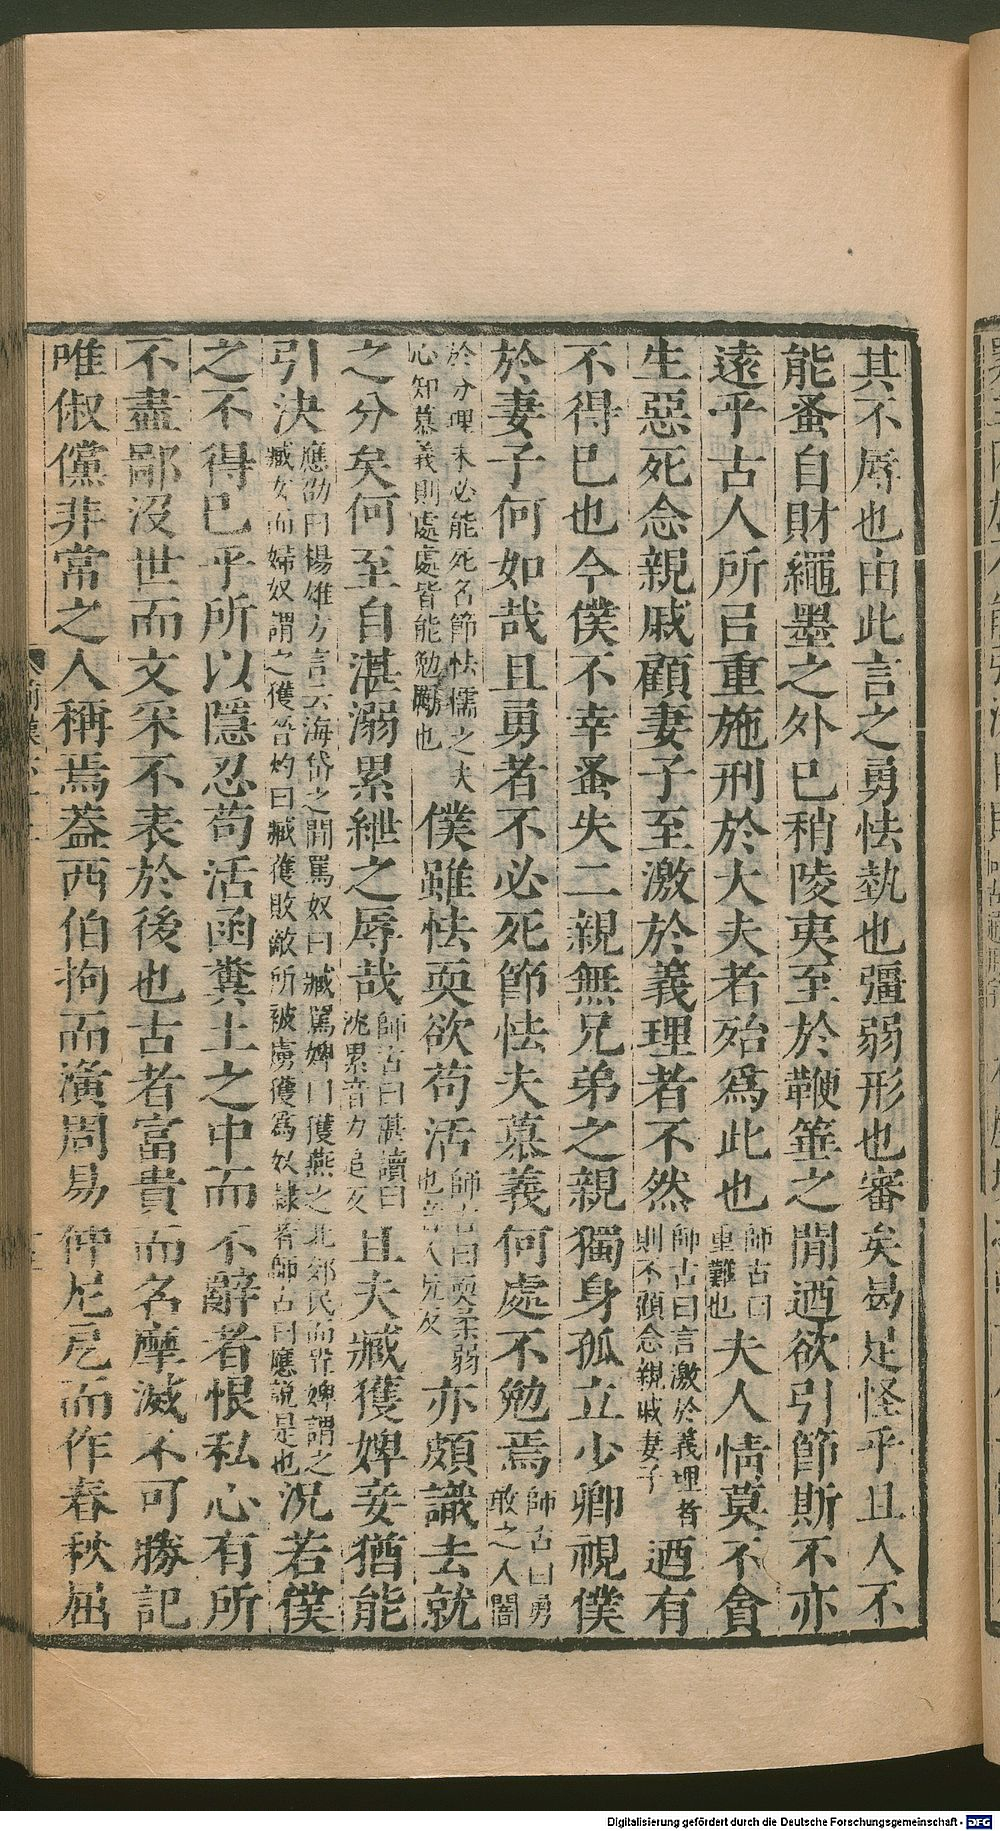 其不辱也由此言之勇怯埶也彊弱形也審矣曷足怪乎且人不
能蚤自財繩墨之外巳稍陵夷至於鞭箠之閒迺欲引節斯不亦
遠乎古人所㠯重施刑於大夫者殆爲此也師古曰重難也夫人情莫不貪
生惡死念親戚顧妻子至激於義理者不然師古曰言激於義理者則不顧念親戚妻子迺有
不得巳也今僕不幸蚤失二親無兄弟之親獨身孤立少卿視僕
於妻子何如哉且勇者不必死節怯夫慕義何處不勉焉師古曰勇敢之人闇
於分理未必能死名節怯懦之夫心知慕義則處處皆能勉勵也僕雖怯耎欲苟活師古曰耎柔弱也音人兖反亦頗識去就
之分矣何至自湛溺累紲之辱哉師古曰湛讀曰沈累音力追反且夫臧獲婢妾猶能
引決應劭曰楊雄方言云海岱之閒罵奴曰臧罵婢曰獲燕之北郊民而壻婢謂之臧女而婦奴謂之獲晉灼曰臧獲敗敵所被虜獲爲奴隸者師古曰應說是也況若僕
之不得巳乎所以隱忍苟活函糞土之中而不辭者恨私心有所
不盡鄙沒世而文采不表於後也古者富貴而名摩滅不可勝記
唯俶儻非常之人稱焉葢西伯拘而演周易仲尼戹而作春秋屈
Digitalisierung gefördert durch die Deutsche Forschungsgemeinschaft - DFG